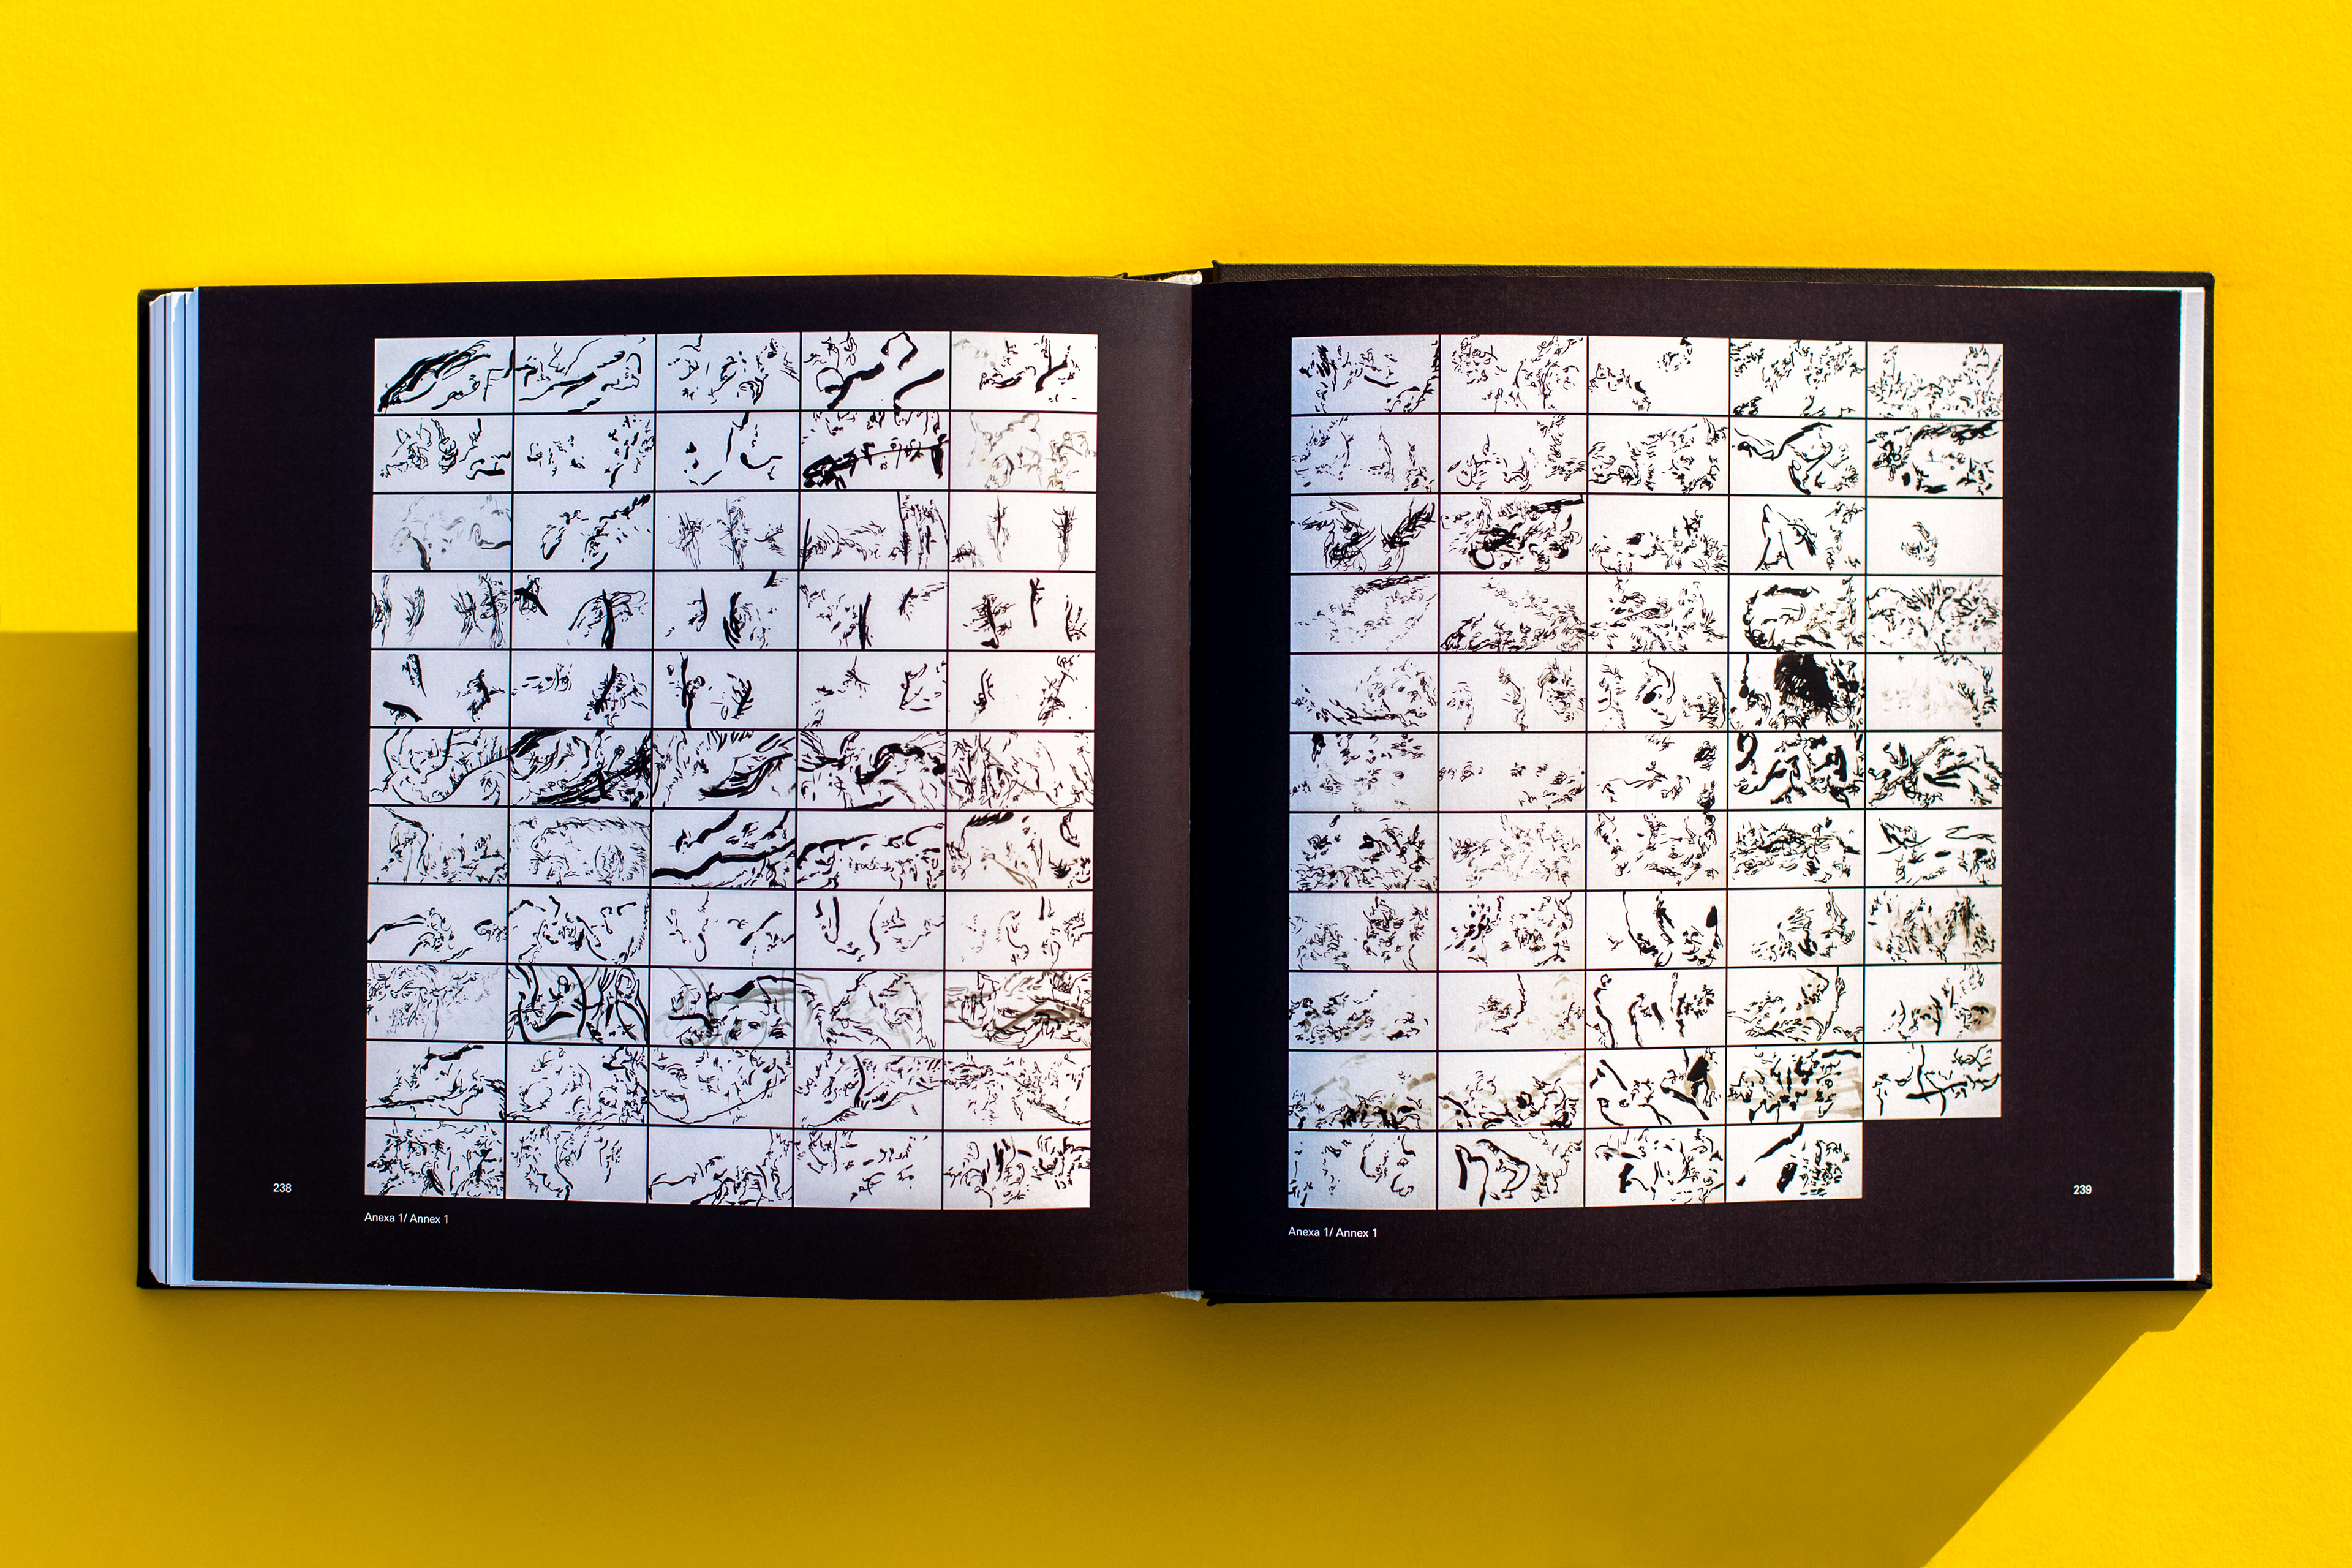 238
Anexa 1/ Annex 1
239
Anexa 1/ Annex 1